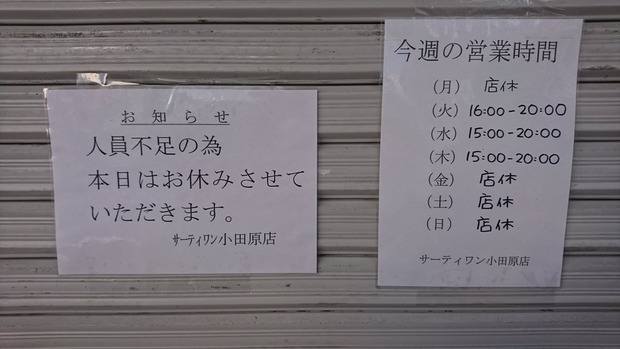 お知らせ
人員不足の為
本日はお休みさせて
いただきます。
ｻｰﾃｨﾜﾝ小田原店
今週の営業時間
（月） 店休
（火） 16:00-20:00
（水） 15:00-20:00
（木） 15:00-20:00
（金） 店休
（土） 店休
（日） 店休
サーティワン小田原店